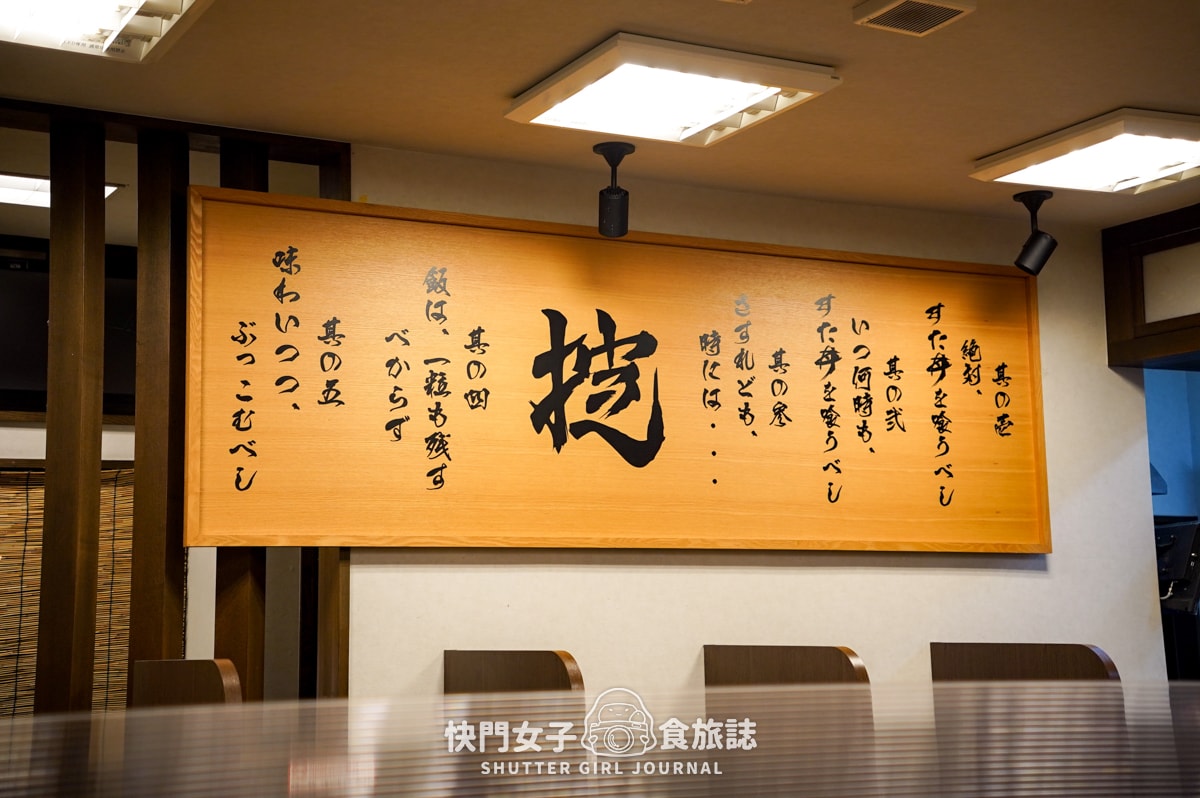 其の壱
絶対、
すた丼を喰うべし
其の弐
いつ何時も、
すた丼を喰うべし
其の参
さすれども、
時には・・・
掟
其の四
飯は、一粒も残す
べからず
其の五
味わいつつ、
ぶっこむべし
快門女子 食旅誌
SHUTTER GIRL JOURNAL